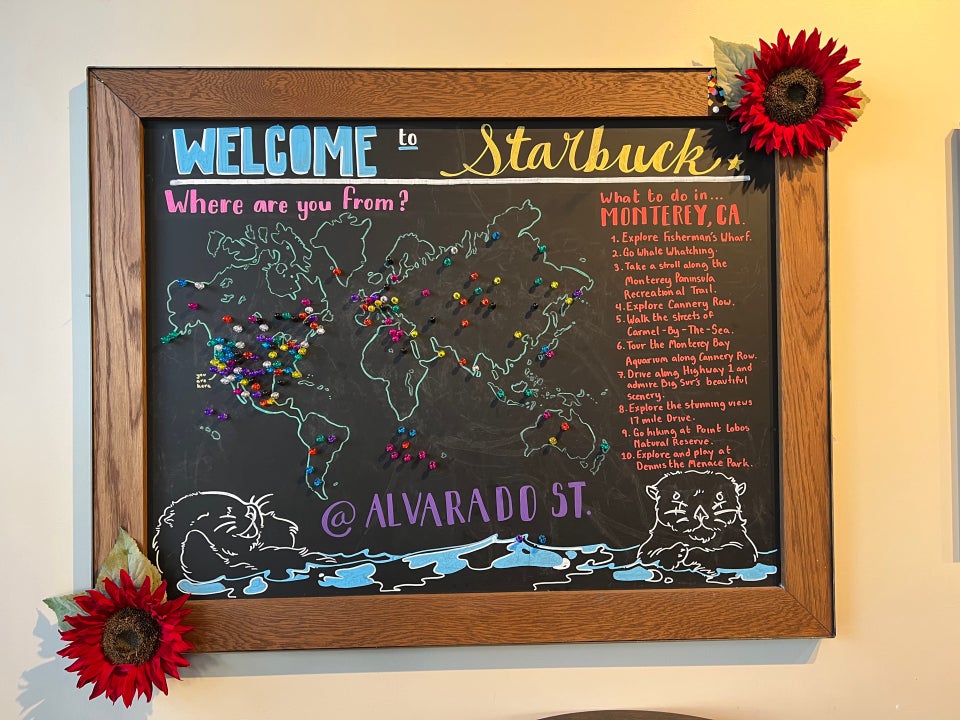 WELCOME to Starbucks
Where are you from?
you
are
here
What to do in...
MONTEREY, CA.
1. Explore Fisherman's Wharf.
2. Go Whale Whatching.
3. Take a stroll along the
Monterey Peninsula
Recreational Trail.
4. Explore Cannery Row.
5. Walk the streets of
Carmel-By-The-Sea.
6. Tour the Monterey Bay
Aquarium along Cannery Row.
7. Drive along Highway 1 and
admire Big Sur's beautiful
scenery.
8. Explore the stunning views
17 mile Drive.
9. Go hiking at Point Lobos
Natural Reserve.
10. Explore and play at
Dennis the Menace Park.
@ ALVARADO ST.